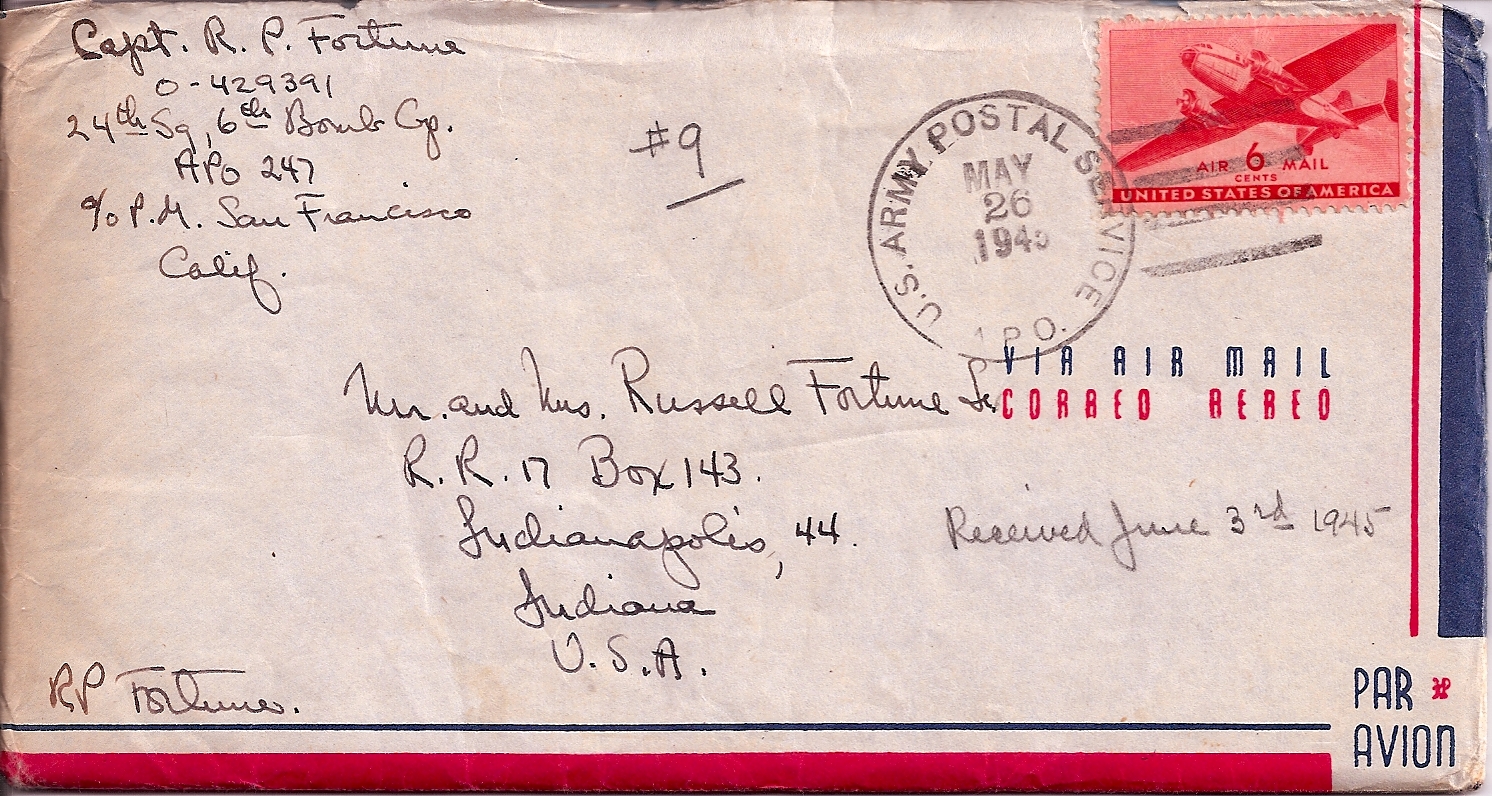 Capt. R. P. Fortune
O-429391
24th Sq, 6th Bomb Gp.
APO 247
c/o P.M. San Francisco
Calif.
#9
U.S. ARMY POSTAL SERVICE
MAY
26
1945
A.P.O.
AIR 6 MAIL
CENTS
UNITED STATES OF AMERICA
VIA AIR MAIL
CORREO AEREO
Mr. and Mrs. Russell Fortune Sr.
R.R. 17 Box 143.
Indianapolis, 44.
Indiana
U.S.A.
Received June 3rd 1945
RP Fortune.
PAR
AVION